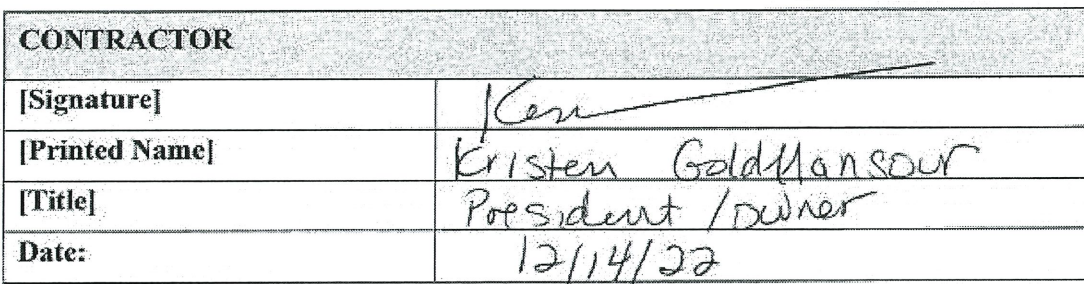 CONTRACTOR
[Signature]
[Printed Name] Kristen GoldMansour
[Title] President / owner
Date: 12/14/22